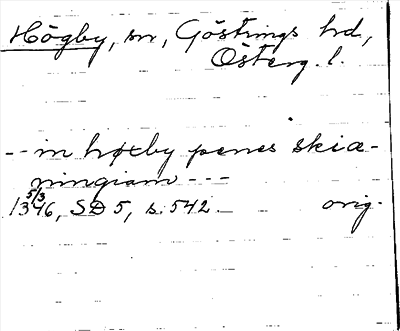 Högby, sn, Göstrings hd,
Österg. l.
-- in høxby penes skiæ-
ningiam ---
5/3
1346, SD 5, s. 542. orig.